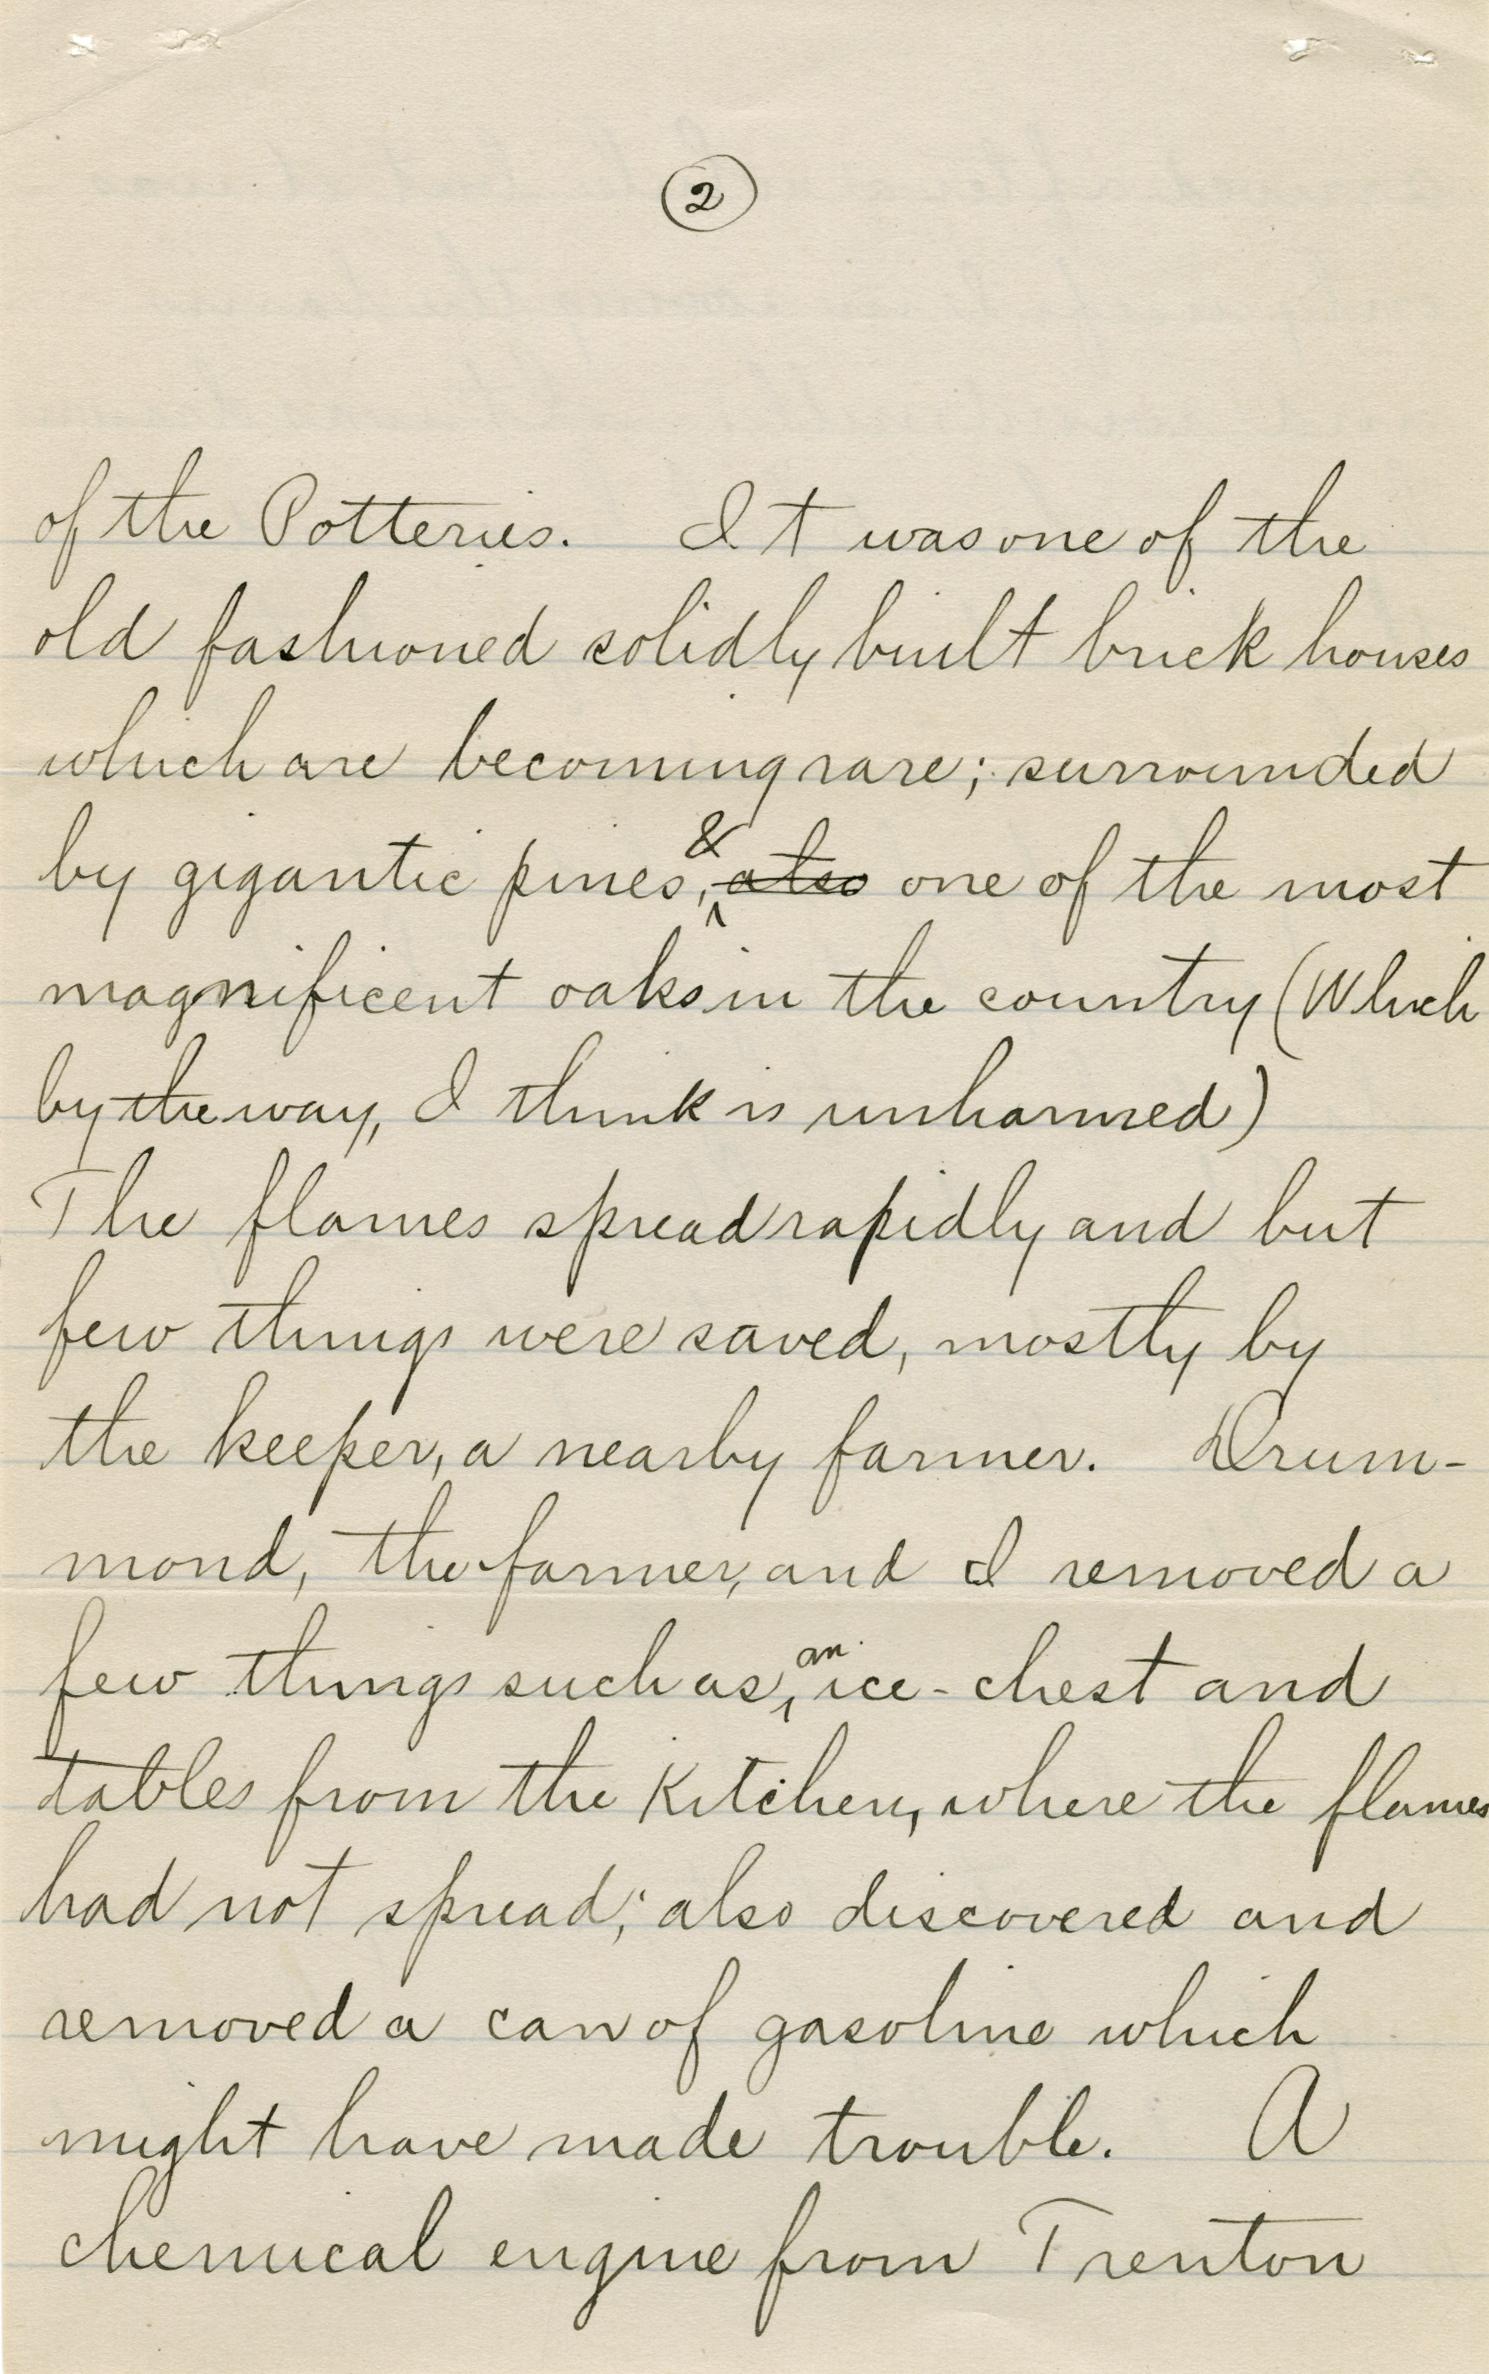 2
of the Potteries. It was one of the
old fashioned solidly built brick houses
which are becoming rare; surrounded
by gigantic pines, & also one of the most
magnificent oaks in the country (Which
by the way, I think is unharmed)
The flames spread rapidly and but
few things were saved, mostly by
the keeper, a nearby farmer. Drum-
mond, the farmer, and I removed a
few things such as, an ice-chest and
tables from the Kitchen, where the flames
had not spread; also discovered and
removed a can of gasoline which
might have made trouble. A
chemical engine from Trenton